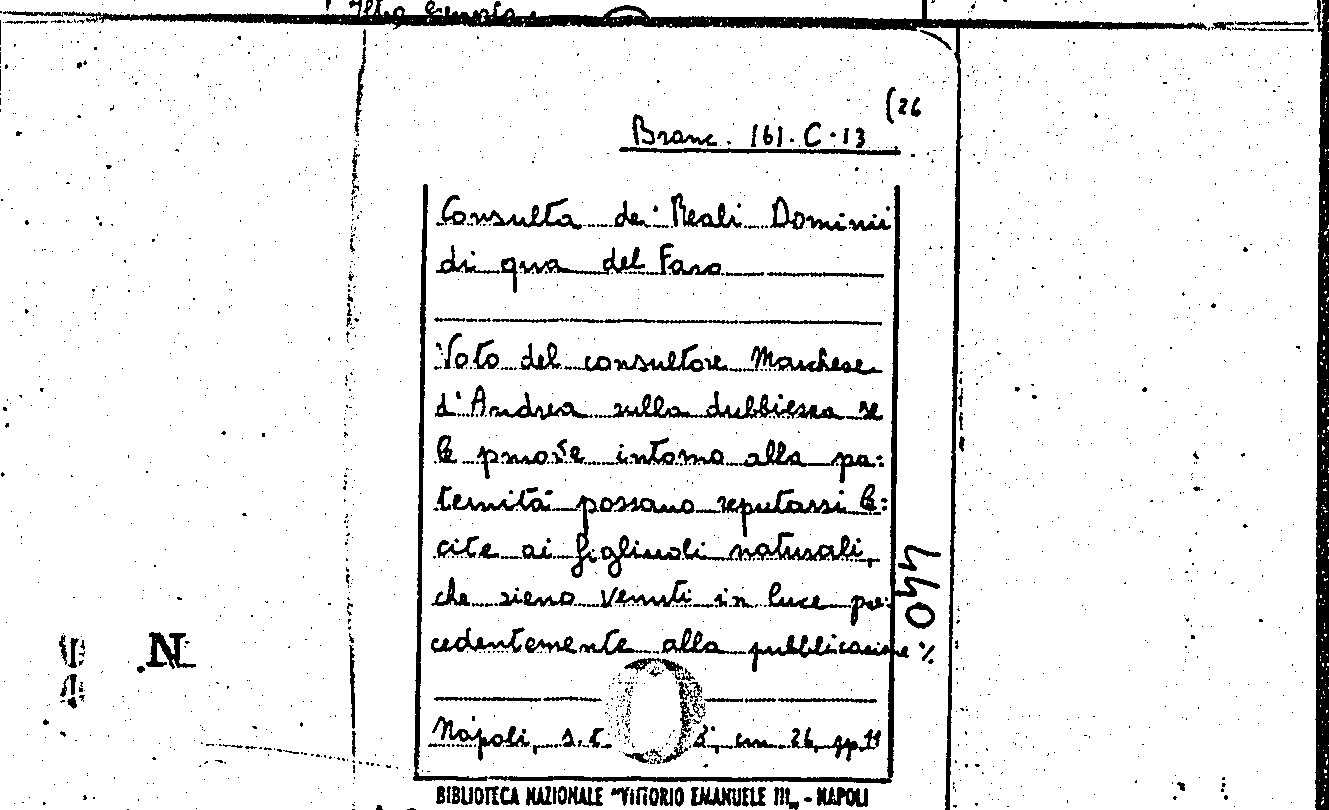 (26
Branc. 161. C. 13
Consulta de' Reali Dominii
di qua del Faro
Voto del consultore Marchese
d'Andrea sulla dubbiezza se
le pruove intorno alla pa:
ternità possano reputarsi le:
cite ai figliuoli naturali,
che sieno venuti in luce pre:
cedentemente alla pubblicazione %
Napoli, s.t. 8°, cm. 26, pp. 11
4404
.N
BIBLIOTECA NAZIONALE "VITTORIO EMANUELE III„ - NAPOLI